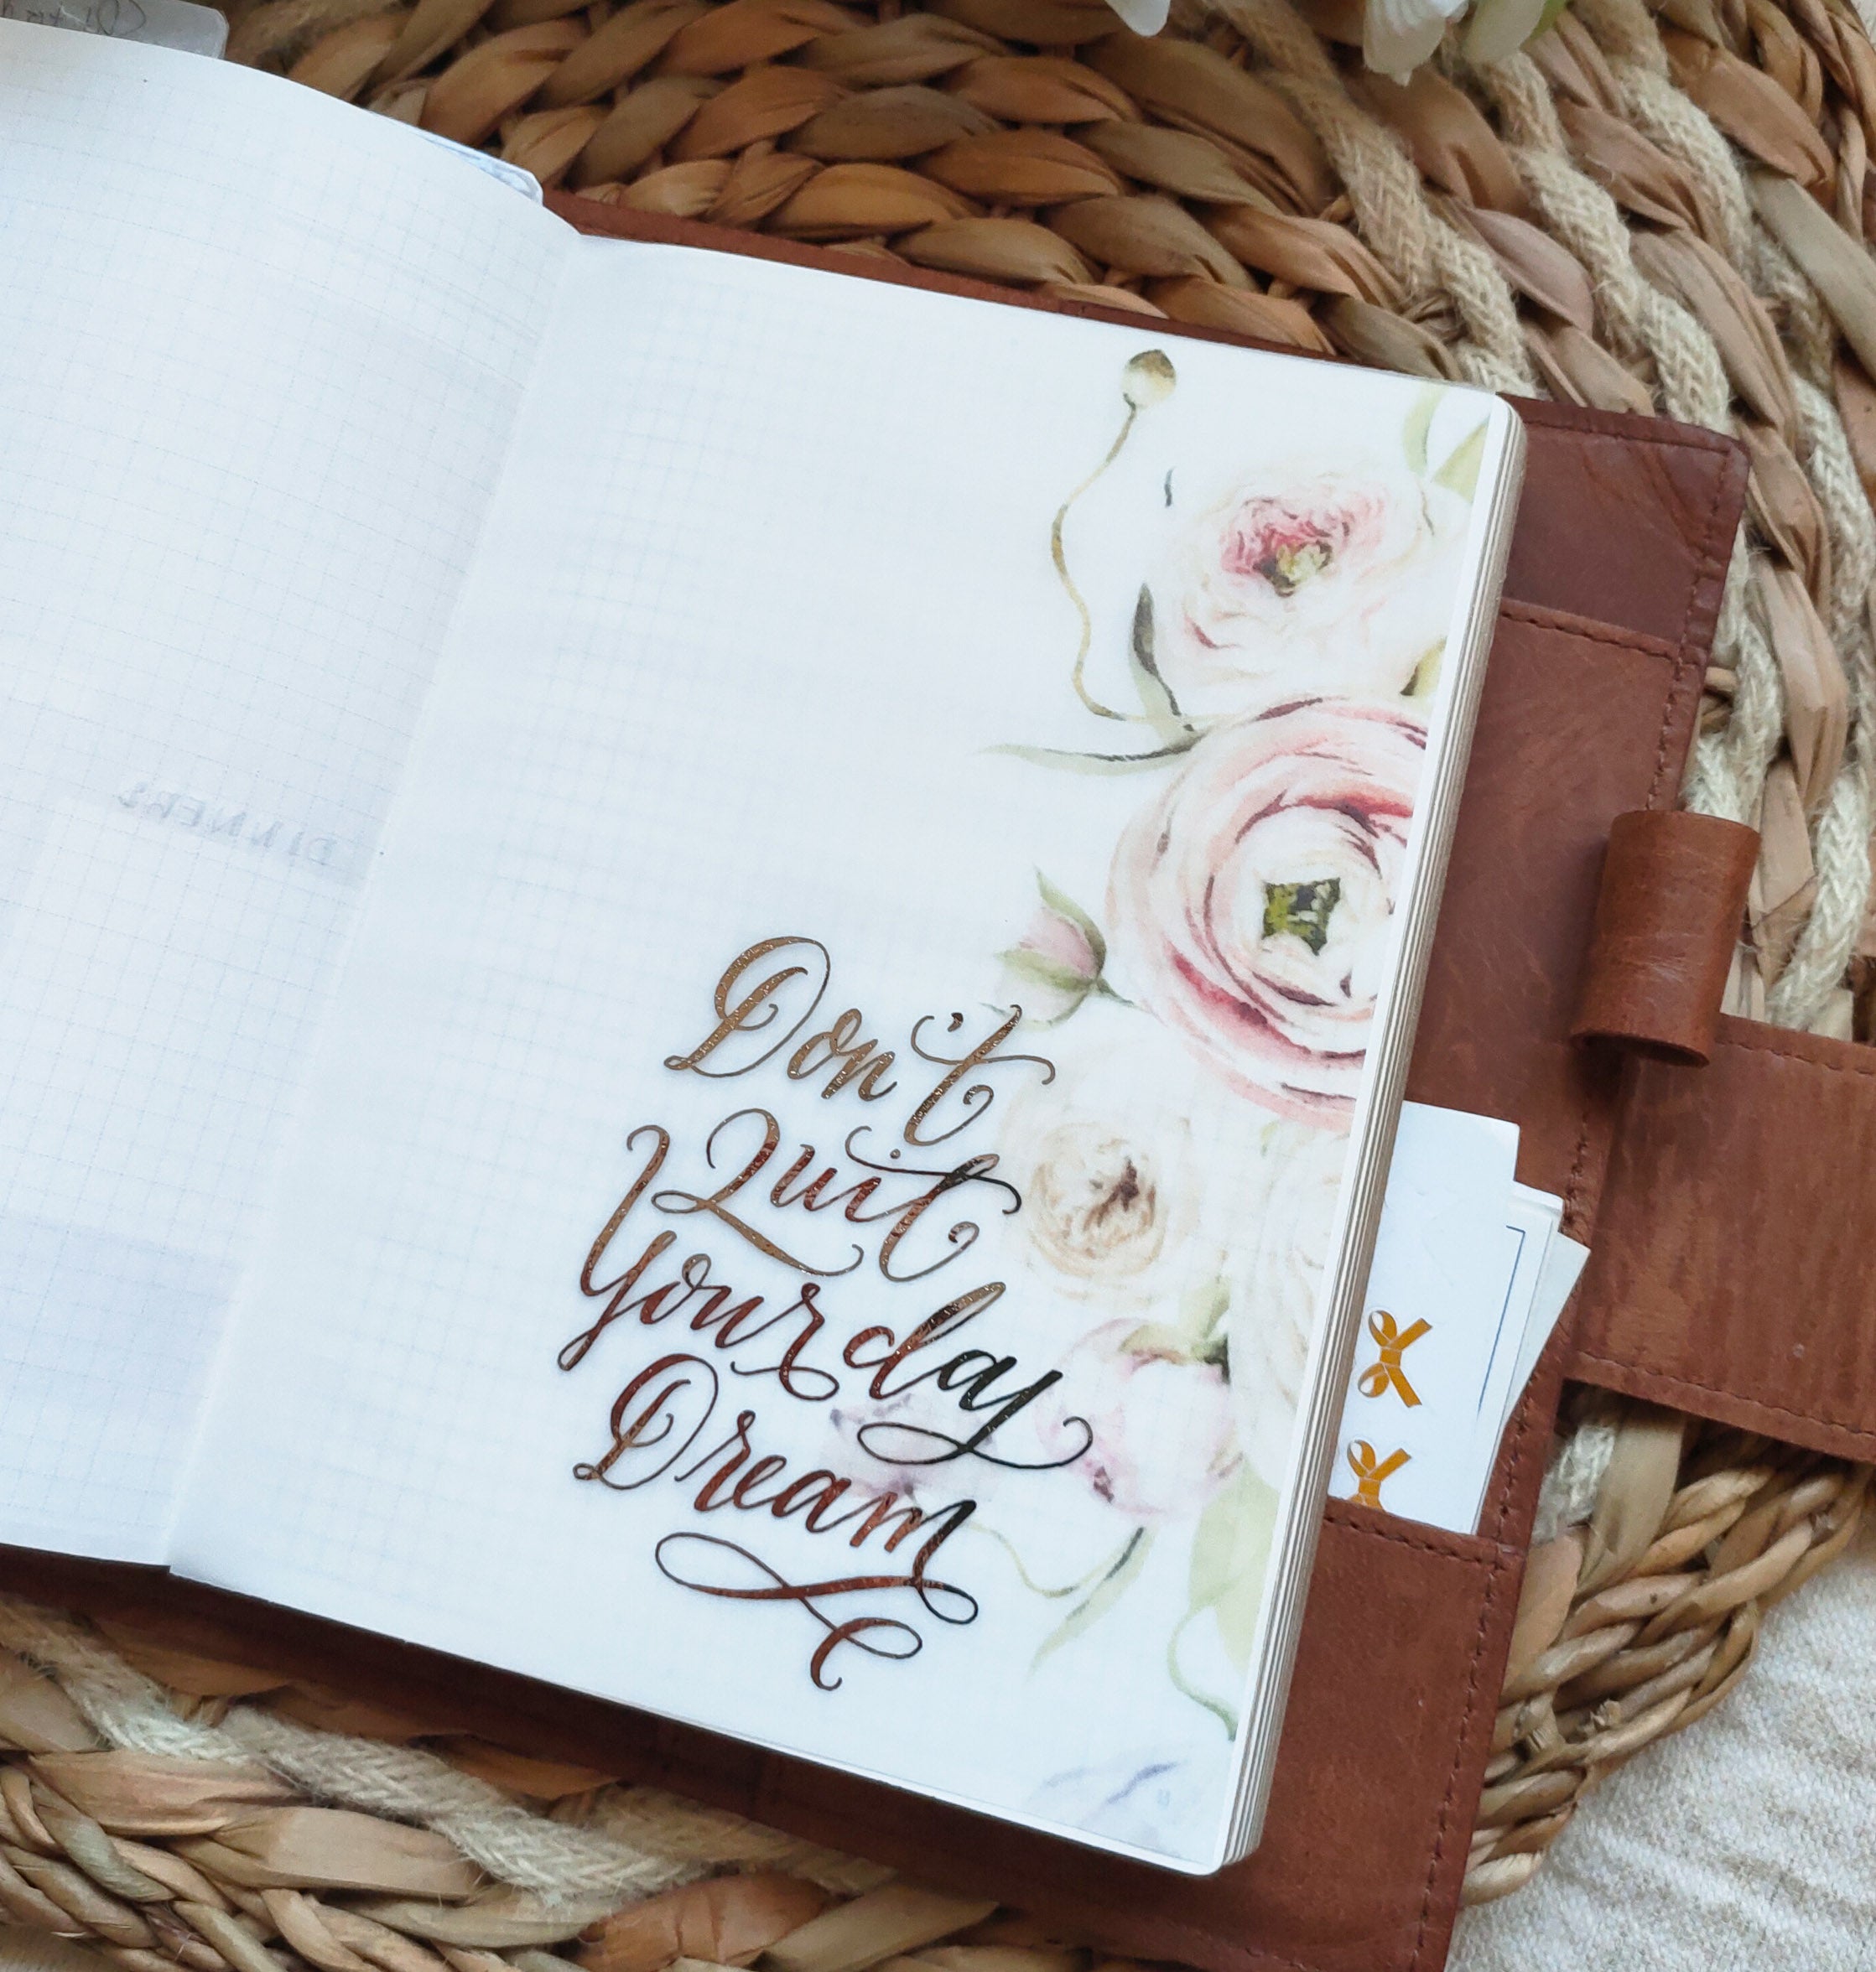 DINNERS
Don't
Quit
Your day
Dream